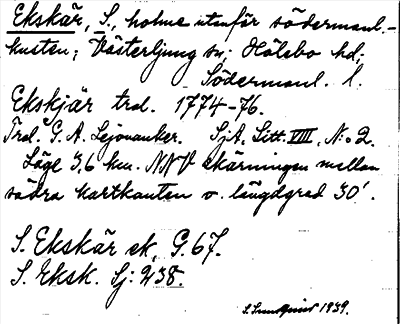 Ekskär, S., holme utanför södermanl.-
kusten; Västerljung sn; Hölebo hd;
Södermanl. l.
Ekskjär trol. 1774-76.
Trol. G. A. Lejonanker. SjA, Litt. VIII, No 2.
Läge 3,6 km. NNV skärningen mellan
södra kartkanten o. längdgrad 30'.
S. Ekskär ek, G. 67.
S. Eksk. Sj: 238.
S. Sundquist 1939.